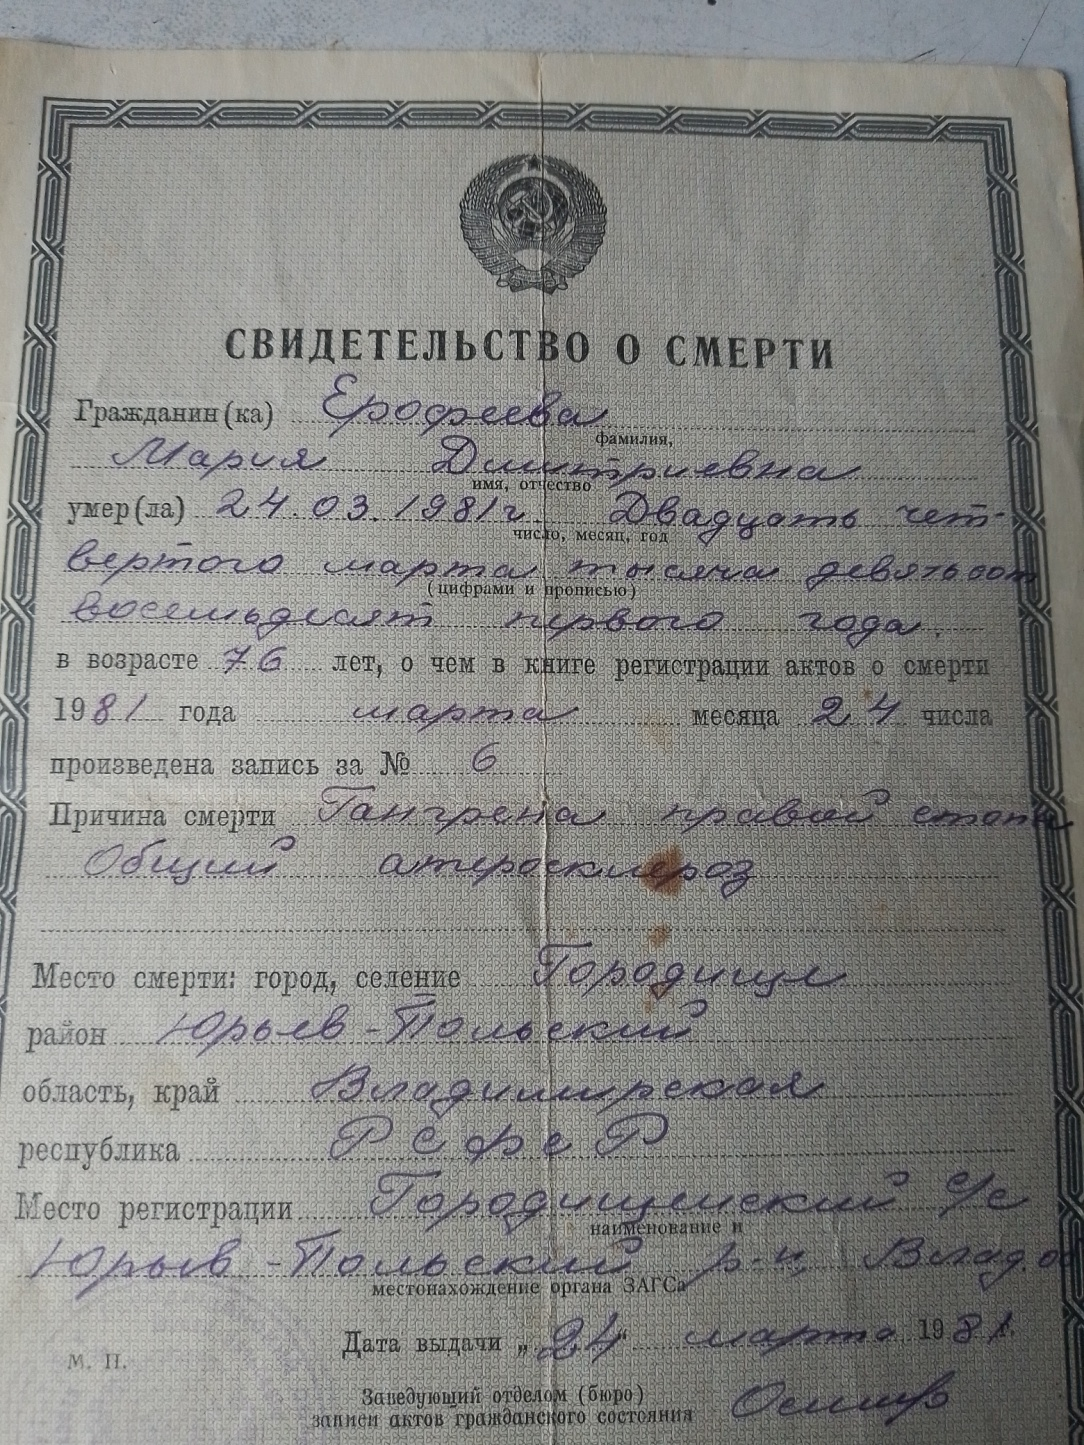 СВИДЕТЕЛЬСТВО О СМЕРТИ
Гражданин(ка) Ерофеева
фамилия,
Мария Дмитриевна
имя, отчество
умер(ла) 24.03.1981г. Двадцать чет-
число, месяц, год
вертого марта тысяча девятьсот
(цифрами и прописью)
восемьдесят первого года.
в возрасте 76 лет, о чем в книге регистрации актов о смерти
1981 года марта месяца 24 числа
произведена запись за № 6
Причина смерти Гангрена правой стопы
Общий атеросклероз
Место смерти: город, селение Городище
район Юрьев-Польский
область, край Владимирская
республика РСФСР
Место регистрации Городищенский с/с
наименование и
Юрьев-Польский р-н, Влад. о
местонахождение органа ЗАГСа
Дата выдачи „24“ марта 1981г.
М. П.
Заведующий отделом (бюро)
записи актов гражданского состояния